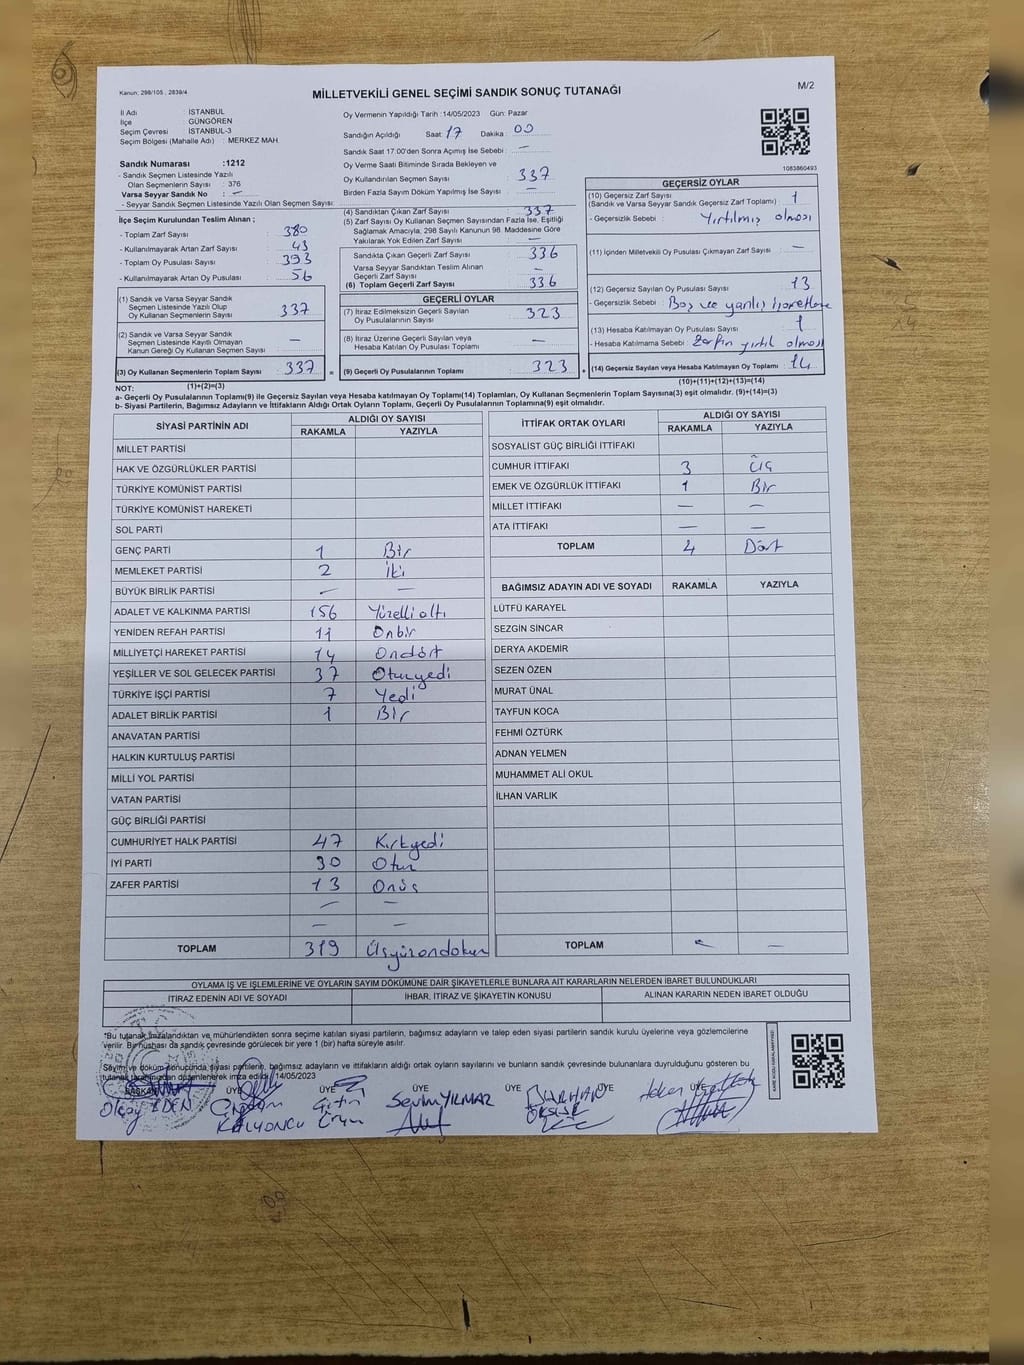 Kanun: 298/105 , 2839/4
MİLLETVEKİLİ GENEL SEÇİMİ SANDIK SONUÇ TUTANAĞI
M/2
İl Adı İSTANBUL
İlçe GÜNGÖREN
Seçim Çevresi İSTANBUL-3
Seçim Bölgesi (Mahalle Adı) : MERKEZ MAH.
Sandık Numarası :1212
- Sandık Seçmen Listesinde Yazılı
Olan Seçmenlerin Sayısı : 376
Varsa Seyyar Sandık No : —
- Seyyar Sandık Seçmen Listesinde Yazılı Olan Seçmen Sayısı:
İlçe Seçim Kurulundan Teslim Alınan ;
- Toplam Zarf Sayısı : 380
- Kullanılmayarak Artan Zarf Sayısı : 43
- Toplam Oy Pusulası Sayısı : 393
- Kullanılmayarak Artan Oy Pusulası : 56
(1) Sandık ve Varsa Seyyar Sandık
Seçmen Listesinde Yazılı Olup
Oy Kullanan Seçmenlerin Sayısı : 337
(2) Sandık ve Varsa Seyyar Sandık
Seçmen Listesinde Kayıtlı Olmayan
Kanun Gereği Oy Kullanan Seçmen Sayısı : —
(3) Oy Kullanan Seçmenlerin Toplam Sayısı : 337
(1)+(2)=(3)
Oy Vermenin Yapıldığı Tarih :14/05/2023 Gün: Pazar
Sandığın Açıldığı Saat: 17 Dakika: 00
Sandık Saat 17.00'den Sonra Açımış İse Sebebi : —
Oy Verme Saati Bitiminde Sırada Bekleyen ve
Oy Kullandırılan Seçmen Sayısı : 337
Birden Fazla Sayım Döküm Yapılmış İse Sayısı : —
(4) Sandıktan Çıkan Zarf Sayısı : 337
(5) Zarf Sayısı Oy Kullanan Seçmen Sayısından Fazla İse, Eşitliği
Sağlamak Amacıyla, 298 Sayılı Kanunun 98. Maddesine Göre
Yakılarak Yok Edilen Zarf Sayısı : —
Sandıkta Çıkan Geçerli Zarf Sayısı : 336
Varsa Seyyar Sandıktan Teslim Alınan
Geçerli Zarf Sayısı : —
(6) Toplam Geçerli Zarf Sayısı : 336
GEÇERLİ OYLAR
(7) İtiraz Edilmeksizin Geçerli Sayılan
Oy Pusulalarının Sayısı : 323
(8) İtiraz Üzerine Geçerli Sayılan veya
Hesaba Katılan Oy Pusulası Toplamı : —
= (9) Geçerli Oy Pusulalarının Toplamı : 323 +
1083860493
GEÇERSİZ OYLAR
(10) Geçersiz Zarf Sayısı : 1
(Sandık ve Varsa Seyyar Sandık Geçersiz Zarf Toplamı)
- Geçersizlik Sebebi : Yırtılmış olması
(11) İçinden Milletvekili Oy Pusulası Çıkmayan Zarf Sayısı : —
(12) Geçersiz Sayılan Oy Pusulası Sayısı : 13
- Geçersizlik Sebebi : Boş ve yanlış işaretleme
(13) Hesaba Katılmayan Oy Pusulası Sayısı : 1
- Hesaba Katılmama Sebebi : Zarfın yırtıl olması
(14) Geçersiz Sayılan veya Hesaba Katılmayan Oy Toplamı : 14
(10)+(11)+(12)+(13)=(14)
NOT:
a- Geçerli Oy Pusulalarının Toplamı(9) ile Geçersiz Sayılan veya Hesaba katılmayan Oy Toplamı(14) Toplamları, Oy Kullanan Seçmenlerin Toplam Sayısına(3) eşit olmalıdır. (9)+(14)=(3)
b- Siyasi Partilerin, Bağımsız Adayların ve İttifakların Aldığı Ortak Oyların Toplamı, Geçerli Oy Pusulalarının Toplamına(9) eşit olmalıdır.
SİYASİ PARTİNİN ADI ALDIĞI OY SAYISI
RAKAMLA YAZIYLA
MİLLET PARTİSİ
HAK VE ÖZGÜRLÜKLER PARTİSİ
TÜRKİYE KOMÜNİST PARTİSİ
TÜRKİYE KOMÜNİST HAREKETİ
SOL PARTİ
GENÇ PARTİ 1 Bir
MEMLEKET PARTİSİ 2 İki
BÜYÜK BİRLİK PARTİSİ — —
ADALET VE KALKINMA PARTİSİ 156 Yüzellialtı
YENİDEN REFAH PARTİSİ 11 Onbir
MİLLİYETÇİ HAREKET PARTİSİ 14 Ondört
YEŞİLLER VE SOL GELECEK PARTİSİ 37 Otuzyedi
TÜRKİYE İŞÇİ PARTİSİ 7 Yedi
ADALET BİRLİK PARTİSİ 1 Bir
ANAVATAN PARTİSİ
HALKIN KURTULUŞ PARTİSİ
MİLLİ YOL PARTİSİ
VATAN PARTİSİ
GÜÇ BİRLİĞİ PARTİSİ
CUMHURİYET HALK PARTİSİ 47 Kırkyedi
İYİ PARTİ 30 Otuz
ZAFER PARTİSİ 13 Onüç
— —
— —
TOPLAM 319 Üçyüzondokuz
İTTİFAK ORTAK OYLARI ALDIĞI OY SAYISI
RAKAMLA YAZIYLA
SOSYALİST GÜÇ BİRLİĞİ İTTİFAKI
CUMHUR İTTİFAKI 3 Üç
EMEK VE ÖZGÜRLÜK İTTİFAKI 1 Bir
MİLLET İTTİFAKI — —
ATA İTTİFAKI — —
TOPLAM 4 Dört
BAĞIMSIZ ADAYIN ADI VE SOYADI RAKAMLA YAZIYLA
LÜTFÜ KARAYEL
SEZGİN SİNCAR
DERYA AKDEMİR
SEZEN ÖZEN
MURAT ÜNAL
TAYFUN KOCA
FEHMİ ÖZTÜRK
ADNAN YELMEN
MUHAMMET ALİ OKUL
İLHAN VARLIK
TOPLAM — —
OYLAMA İŞ VE İŞLEMLERİNE VE OYLARIN SAYIM DÖKÜMÜNE DAİR ŞİKAYETLERLE BUNLARA AİT KARARLARIN NELERDEN İBARET BULUNDUKLARI
İTİRAZ EDENİN ADI VE SOYADI İHBAR, İTİRAZ VE ŞİKAYETİN KONUSU ALINAN KARARIN NEDEN İBARET OLDUĞU
*Bu tutanak imzalandıktan ve mühürlendikten sonra seçime katılan siyasi partilerin, bağımsız adayların ve talep eden siyasi partilerin sandık kurulu üyelerine veya gözlemcilerine
verilir. Bir nüshası da sandık çevresinde görülecek bir yere 1 (bir) hafta süreyle asılır.
Sayım ve döküm sonucunda siyasi partilerin, bağımsız adayların ve ittifakların aldığı ortak oyların sayılarını ve bunların sandık çevresinde bulunanlara duyrulduğunu gösteren bu
tutanak tarafımızdan düzenlenerek imza edildi. 14/05/2023
BAŞKAN ÜYE ÜYE ÜYE ÜYE ÜYE ÜYE
Olcay EDEN Çiğdem KALYONCU Çetin Sevim YILMAZ BURHAN Hakan